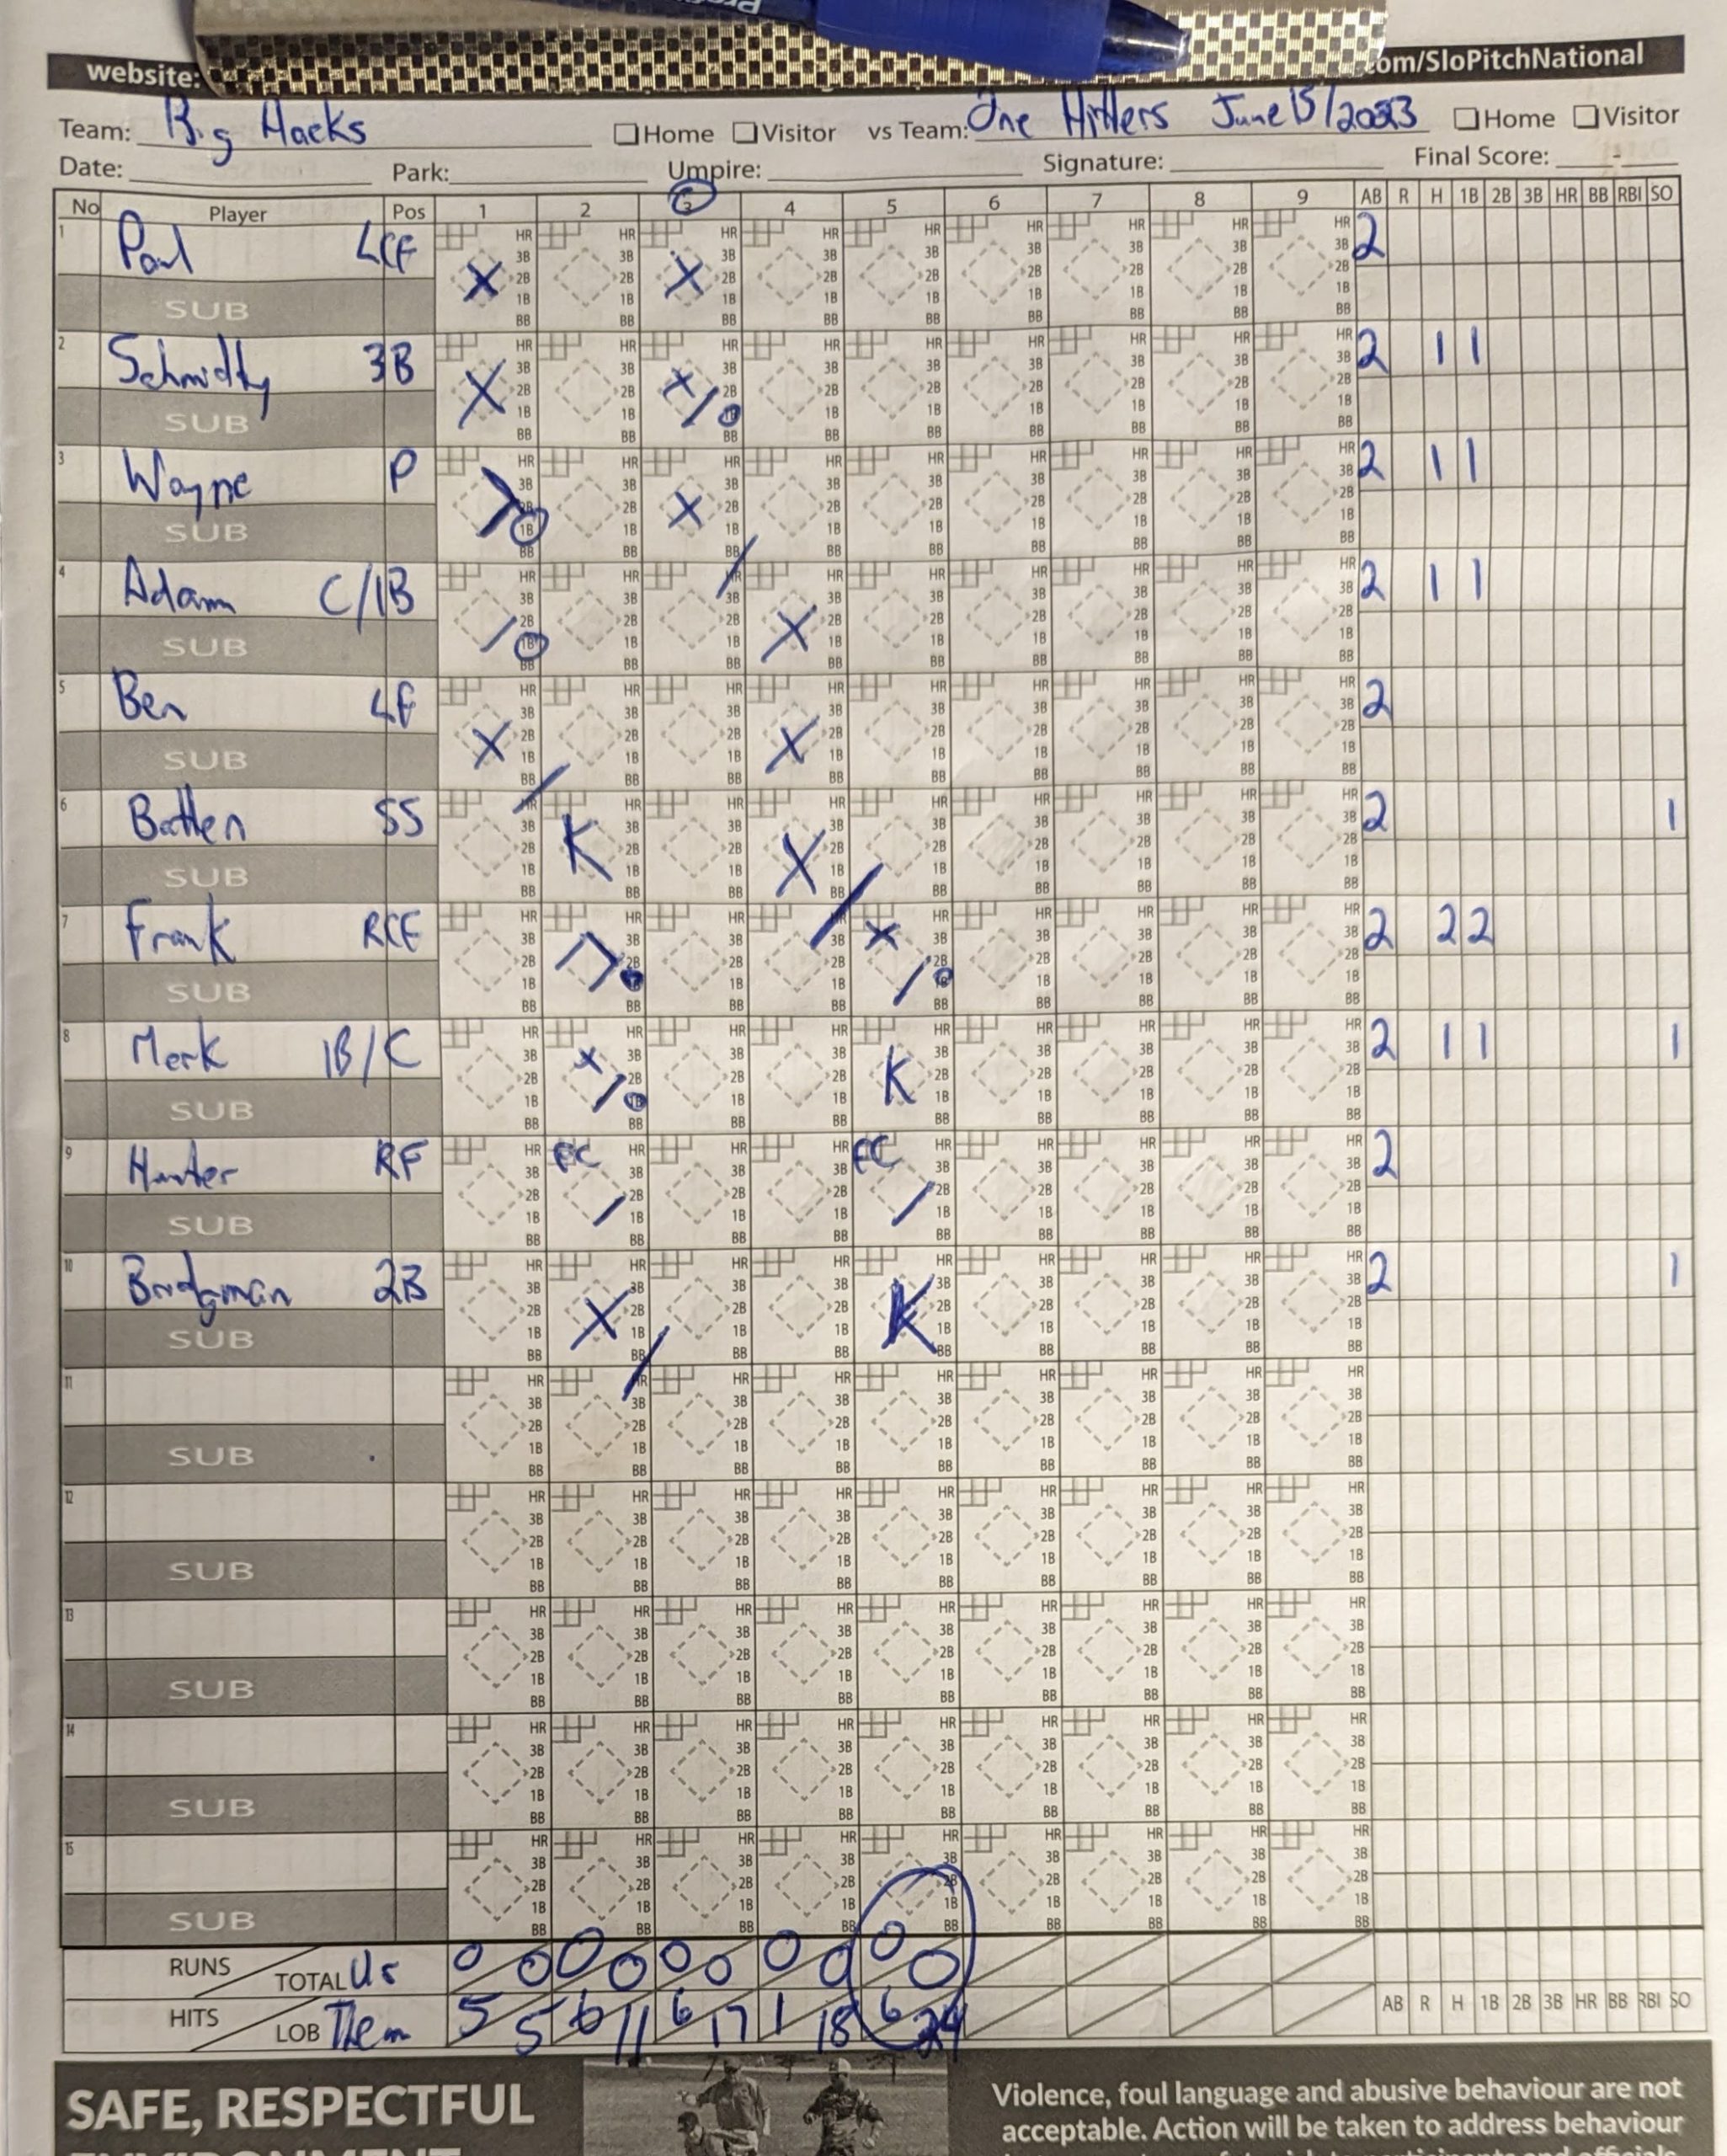 website: com/SloPitchNational
Team: Big Hacks Home Visitor vs Team: One Hitters June 15/2023 Home Visitor
Date: Park: Umpire: Signature: Final Score: -
No Player Pos 1 2 3 4 5 6 7 8 9 AB R H 1B 2B 3B HR BB RBI SO
1 Paul LCF 2
SUB
2 Schmidty 3B 2 1 1
SUB
3 Wayne P 2 1 1
SUB
4 Adam C/1B 2 1 1
SUB
5 Ben LF 2
SUB
6 Batten SS K 2 1
SUB
7 Frank RCF 2 2 2
SUB
8 Merk 1B/C K 2 1 1 1
SUB
9 Hunter RF FC FC 2
SUB
10 Bridgman 2B K 2 1
SUB
11
SUB
12
SUB
13
SUB
14
SUB
15
SUB
RUNS TOTAL Us 0 0 0 0 0 0 0 0 0 0
HITS LOB Them 5 5 6 11 6 17 1 18 6 24 AB R H 1B 2B 3B HR BB RBI SO
SAFE, RESPECTFUL
Violence, foul language and abusive behaviour are not
acceptable. Action will be taken to address behaviour